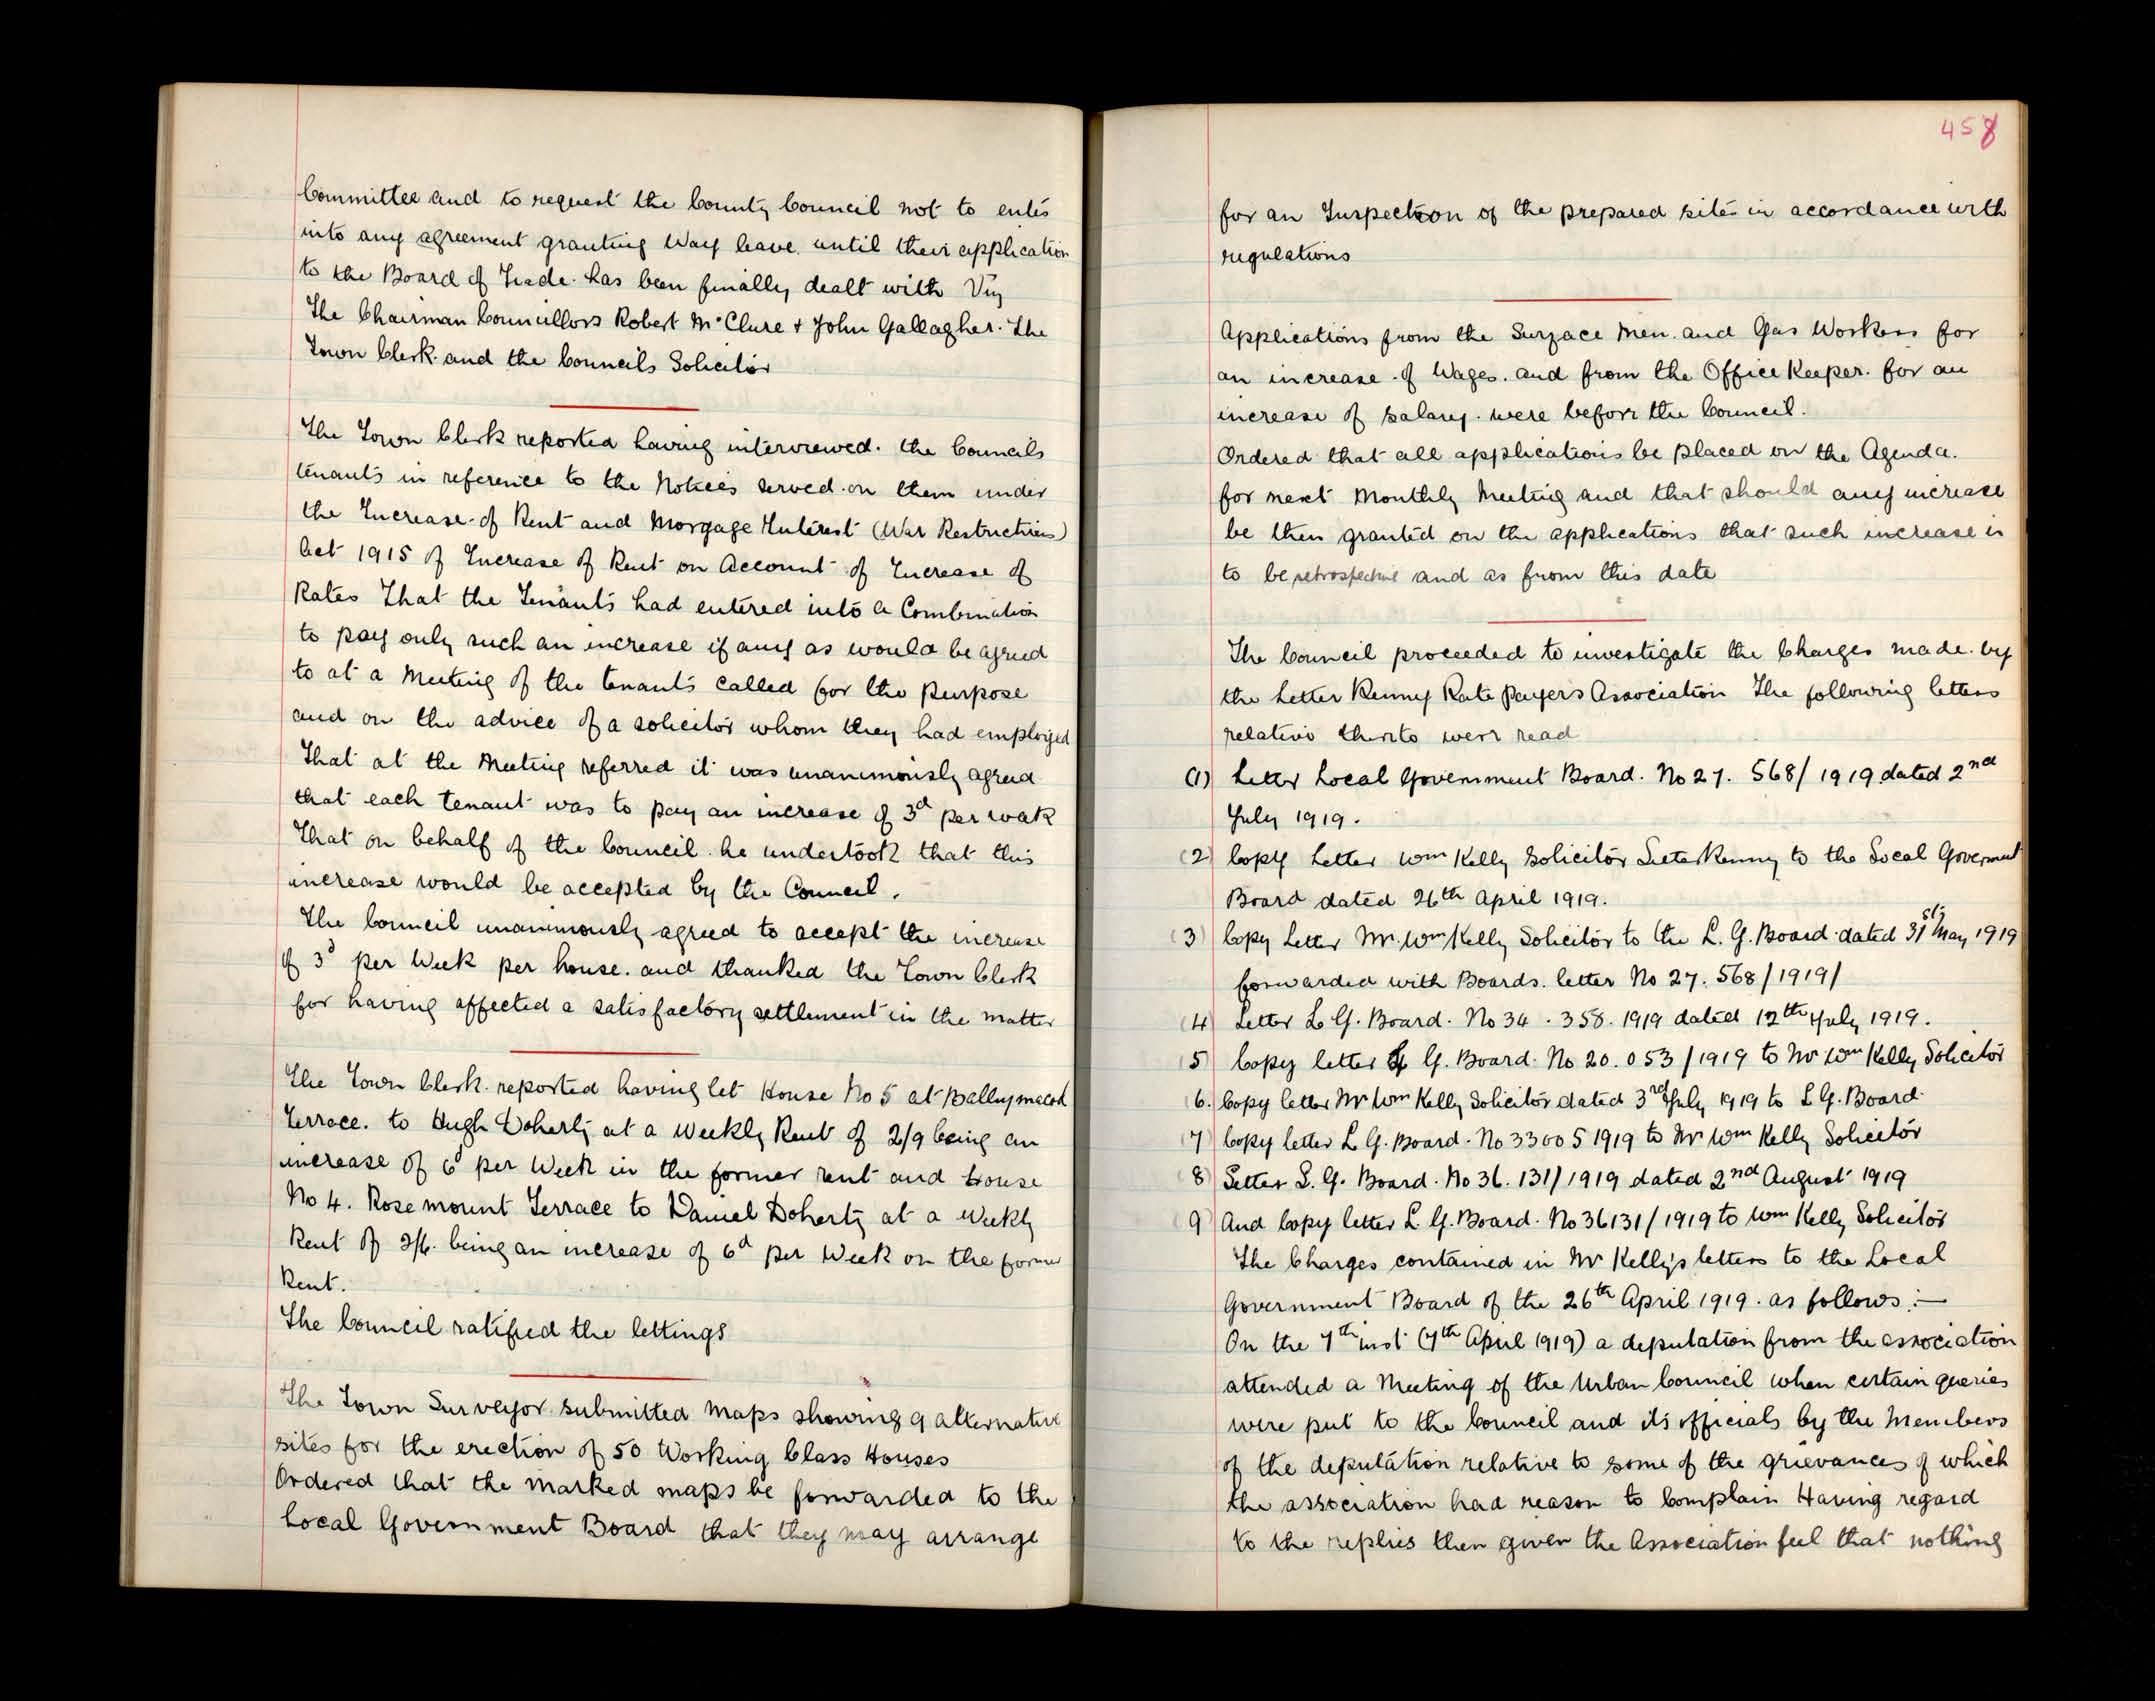 Committee and to request the County Council not to enter
into any agreement granting Way leave until their application
to the Board of Trade has been finally dealt with Viz
The Chairman Councillors Robert McClure + John Gallagher. The
Town Clerk and the Councils Solicitor
The Town Clerk reported having interviewed the Councils
tenants in reference to the Notices served on them under
the Increase of Rent and Morgage Interest (War Restrictions)
Act 1915 of Increase of Rent on Account of Increase of
Rates That the Tenants had entered into a Combination
to pay only such an increase if any as would be agreed
to at a Meeting of the tenants called for the purpose
and on the advice of a solicitor whom they had employed
That at the Meeting referred it was unanimously agreed
that each tenant was to pay an increase of 3d per week
That on behalf of the Council he undertook that this
increase would be accepted by the Council.
The Council unanimously agreed to accept the increase
of 3d per Week per house. and thanked the Town Clerk
for having affected a satisfactory settlement in the matter
The Town Clerk reported having let House No 5 at Ballymacool
Terrace. to Hugh Doherty at a Weekly Rent of 2/9 being an
increase of 6d per Week in the former rent and House
No 4. Rosemount Terrace to Daniel Doherty at a Weekly
Rent of 2/6. being an increase of 6d per Week on the former
Rent.
The Council ratified the lettings
The Town Surveyor submitted Maps showing 9 alternative
sites for the erection of 50 Working Class Houses
Ordered that the marked maps be forwarded to the
Local Government Board that they may arrange
458
for an Inspection of the prepared sites in accordance with
regulations
Applications from the Surface Men. and Gas Workers for
an increase of Wages. and from the Office Keeper. for an
increase of salary. were before the Council.
Ordered that all applications be placed on the Agenda.
for next Monthly Meeting and that should any increase
be then granted on the applications that such increase is
to be retrospective and as from this date
The Council proceeded to investigate the Charges made by
the Letter Kenny Rate Payers Association The following letters
relative thereto were read
(1) Letter Local Government Board. No 27. 568/1919 dated 2nd
July 1919.
(2) Copy Letter Wm Kelly Solicitor Letterkenny to the Local Goverment
Board dated 26th April 1919.
(3) Copy Letter Mr. Wm Kelly Solicitor to the L. G. Board dated 31st May 1919
forwarded with Boards. letter No 27. 568/1919/
(4) Letter L G. Board. No 34. 358. 1919 dated 12th July 1919.
(5) Copy letter L G. Board. No 20. 053/1919 to Mr Wm Kelly Solicitor
(6. Copy letter Mr Wm Kelly Solicitor dated 3rd July 1919 to L G. Board.
(7) Copy letter L G. Board. No 33005 1919 to Mr Wm Kelly Solicitor
(8) Letter L. G. Board. No 36. 131/1919 dated 2nd August 1919
(9 And Copy letter L. G. Board. No 36131/1919 to Wm Kelly Solicitor
The Charges contained in Mr Kelly's letters to the Local
Government Board of the 26th April 1919. as follows:—
On the 7th inst (7th April 1919) a deputation from the association
attended a Meeting of the Urban Council when certain queries
were put to the Council and its officials by the Members
of the deputation relative to some of the grievances of which
the association had reason to Complain Having regard
to the replies then given the Association feel that nothing